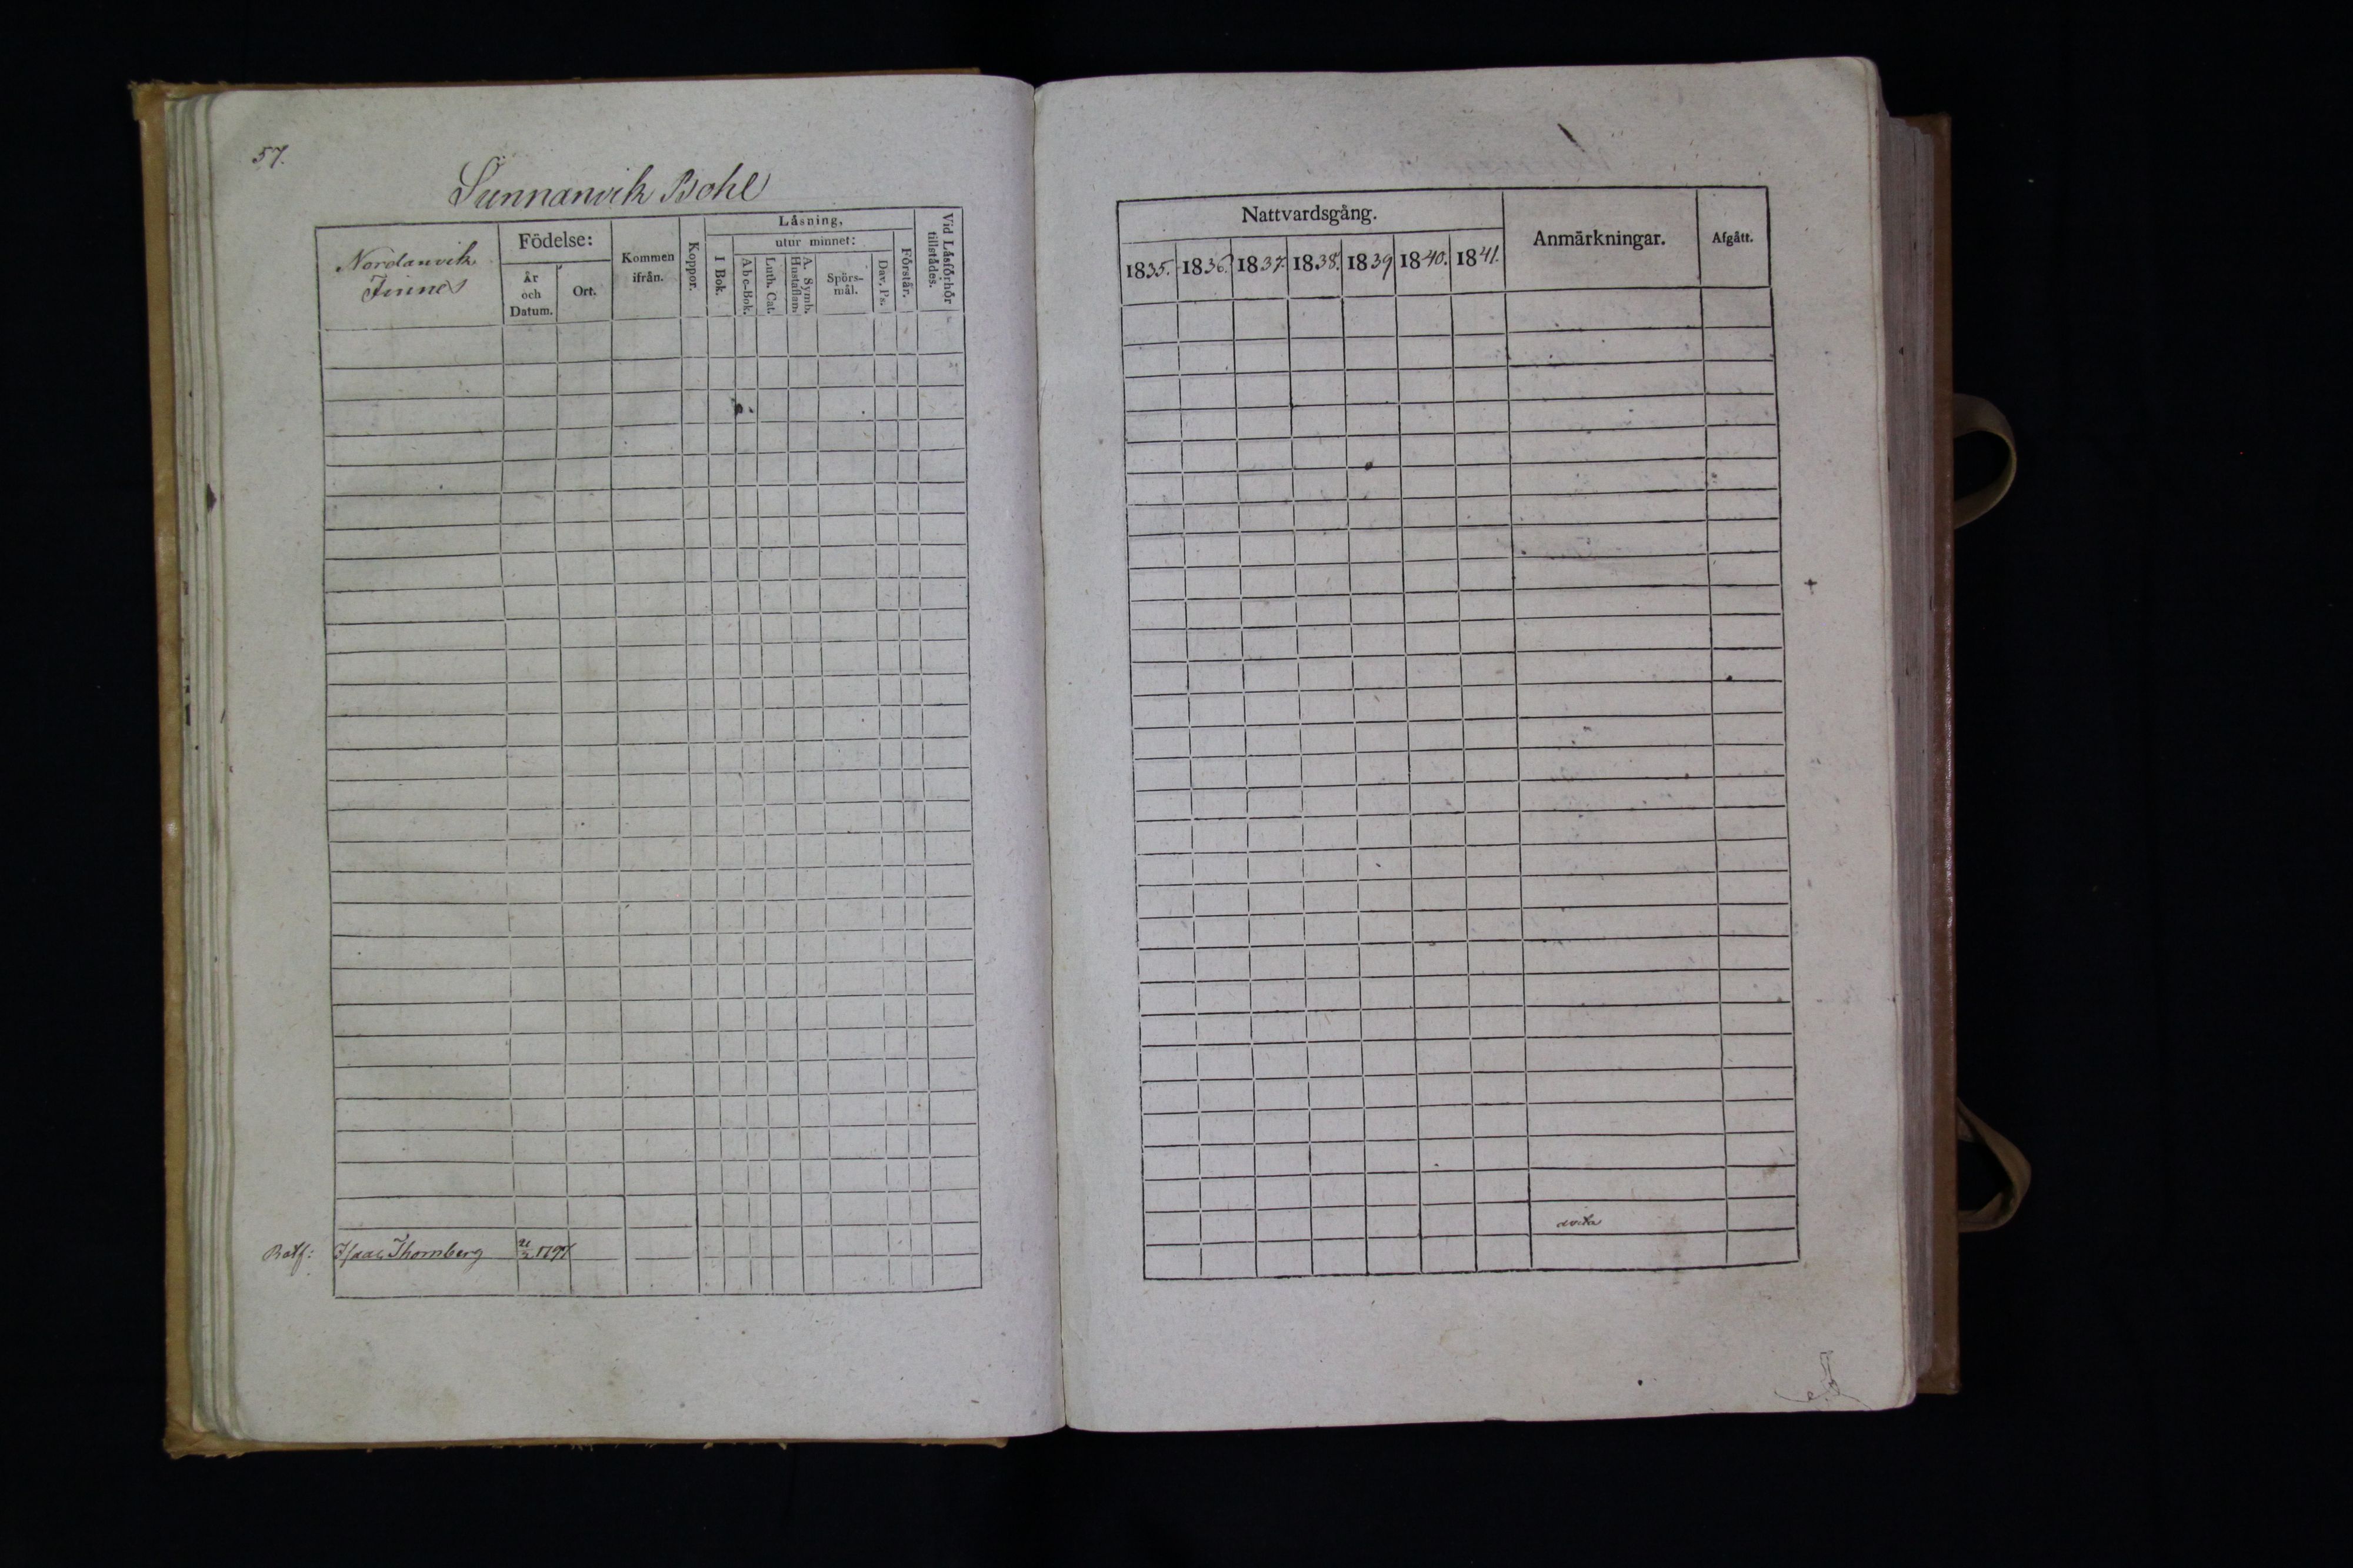 57.
Sunnanvik Bohl
Nordanvik
Finnes
Födelse:
År
och
Datum.
Ort.
Kommen
ifrån.
Koppor.
Låsning,
I Bok.
utur minnet:
Abc-Bok.
Luth. Cat.
A. Symb.
Hustaflan.
Spörs-
mål.
Dav. Ps.
Förstår.
Vid Låsförhör
tillstådes.
Batf: Isaac Thornberg 21/2 1797
Nattvardsgång.
1835. 1836. 1837. 1838. 1839 1840. 1841.
Anmärkningar.
Afgått.